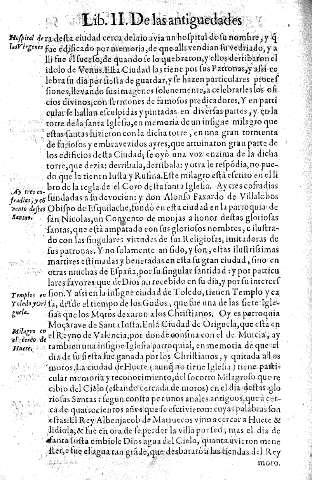 Lib. II. De las antiguedades
Hospital de
las Virgenes
ra desta ciudad cerca del rio avia un hospital de su nombre, y q̃
fue edificado por memoria, de que alli vendian su vedriado, y a
lli fue el suceso, de quando se lo quebraron, y ellos derribaron el
idolo de Venus. Esta Ciudad las tiene por sus Patronas, y assi ce
lebra su dia por fiesta de guardar, y se hazen particulares proces
siones, llevando sus imagenes solenemente, a celebrarles los ofi
cios divinos, con sermones de famosos predicadores. Y en parti
cular se hallan esculpidas y pintadas en diversas partes, y en la
torre de la santa Iglesia, en memoria de un insigne milagro que
estas santas hizieron con la dicha torre, en una gran tormenta
de furiosos y embravezidos ayres, que arruinaron gran parte de
los edificios desta Ciudad, se oyó una voz encima de la dicha
torre, que dezia: derribala, derribala: y otra le respõdia, no pue-
do que la tienen Iusta y Rufina. Este milagro està escrito en el li
bro de la regla de el Coro desta santa Iglesia. Ay tres cofradias
fundadas a su devocion: y don Alonso Faxardo de Villalobos
Obispo de Esquilache, fundó en esta ciudad en la parroquia de
san Nicolas, un Convento de monjas a honor destas gloriosas
santas, que está amparado con sus gloriosos nombres, e ilustra-
do con las singulares virtudes de sus Religiosas, imitadoras de
sus patronas. Y no solamente an sido, y son, estas ilustrissimas
martires estimadas y veneradas en esta su gran ciudad, sino en
otras muchas de España, por su singular santidad: y por particu
lares favores que de Dios an recebido en su dia, y por su interces
sion. Y assi en la insigne ciudad de Toledo, tienen Templo y ca
sa, desde el tiempo de los Godos, que fue una de las siete Igle-
sias que los Moros dexaron a los Christianos. Oy es parroquia
Moçarave de Santa Iusta. En la Ciudad de Origuela, que está en
el Reyno de Valencia, por donde confina con el de Murcia, ay
tambien una insigne Iglesia parroquial, en memoria de que el
dia de su fiesta fue ganada por los Christianos, y quitada a los
moros. La ciudad de Huete (aunq̃ no tiene Iglesia) tiene parti-
cular memoria y reconocimiento, del socorro Milagroso que re
cibio del Cielo (estando cercada de moros) en el dia destas glo
riosas Santas: segun consta por unos anales antiguos, que a cer-
ca de quatrocientos años que se escrivieron: cuyas palabras son
estas: El Rey Albenjacob de Marruecos vino a cercar a Huete &
lidiola, & fue en ora de se perder la villa por sed, mas el dia de
santa Iusta embiole Dios agua del Cielo, quanta uvieron mene
ster, e fue el agua tan grãde, que desbarató a las tiendas del Rey
moro.
Ay tres co-
fradias, y co
vento destas
Santas.
Templos en
Toledo y ori
guela.
Milagro en
el cerco de
Huete.